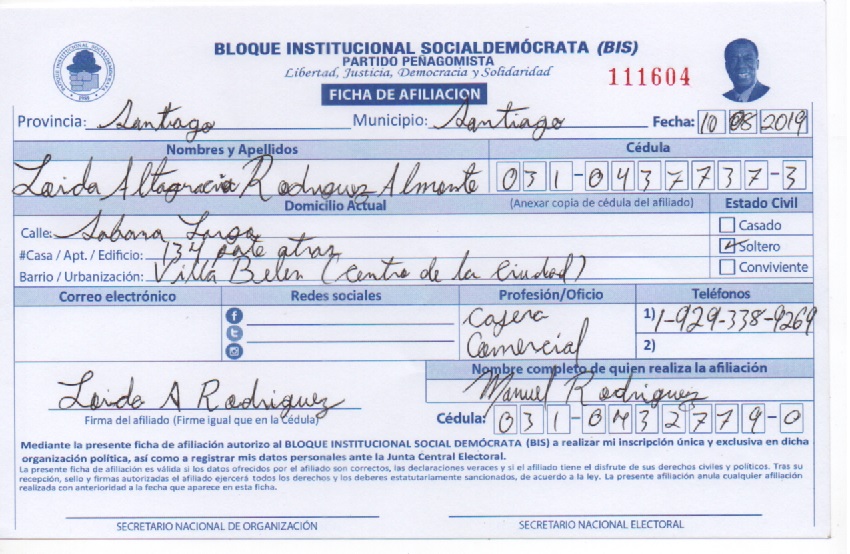 BLOQUE INSTITUCIONAL SOCIALDEMÓCRATA (BIS)
PARTIDO PEÑAGOMISTA
Libertad, Justicia, Democracia y Solidaridad
111604
FICHA DE AFILIACION
Provincia: Santiago Municipio: Santiago Fecha: 10 08 2019
Nombres y Apellidos Cédula
Loida Altagracia Rodriguez Almonte 031-0437737-3
Domicilio Actual (Anexar copia de cédula del afiliado) Estado Civil
Calle: Sabana Larga Casado
#Casa / Apt. / Edificio: 134 parte atraz Soltero
Barrio / Urbanización: Villa Belen (Centro de la Ciudad) Conviviente
Correo electrónico Redes sociales Profesión/Oficio Teléfonos
Cajera 1) 1-929-338-9269
Comercial 2)
Nombre completo de quien realiza la afiliación
Loida A Rodriguez Manuel Rodriguez
Firma del afiliado (Firme igual que en la Cédula) Cédula: 031-0432779-0
Mediante la presente ficha de afiliación autorizo al BLOQUE INSTITUCIONAL SOCIAL DEMÓCRATA (BIS) a realizar mi inscripción única y exclusiva en dicha
organización política, así como a registrar mis datos personales ante la Junta Central Electoral.
La presente ficha de afiliación es válida si los datos ofrecidos por el afiliado son correctos, las declaraciones veraces y si el afiliado tiene el disfrute de sus derechos civiles y políticos. Tras su
recepción, sello y firmas autorizadas el afiliado ejercerá todos los derechos y los deberes estatutariamente sancionados, de acuerdo a la ley. La presente afiliación anula cualquier afiliación
realizada con anterioridad a la fecha que aparece en esta ficha.
SECRETARIO NACIONAL DE ORGANIZACIÓN SECRETARIO NACIONAL ELECTORAL